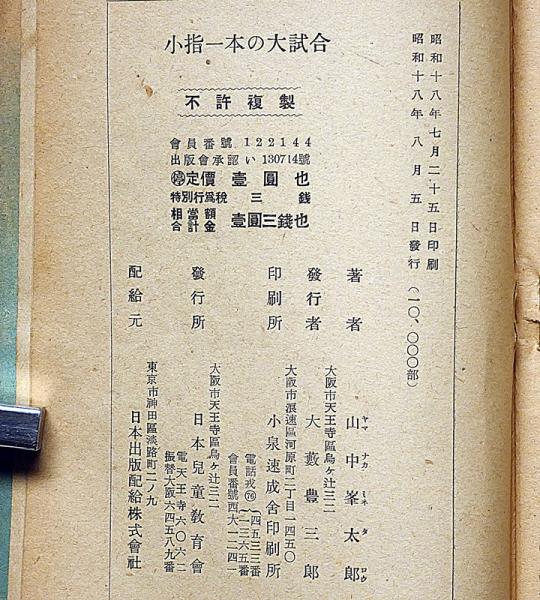 小指一本の大試合
不許複製
會員番號 122144
出版會承認 い 130714號
停定價 壹圓也
特別行爲税 三錢
相當額
合計金 壹圓三錢也
昭和十八年七月二十五日印刷
昭和十八年八月五日發行(一〇、〇〇〇部)
著者 山中峯太郎
ヤマ ナカ ミネ タ ロウ
大阪市天王寺區烏ヶ辻三二
發行者 大藪豊三郎
大阪市浪速區河原町二丁目一四五〇
印刷所 小泉速成舍印刷所
電話戎(76)
四五三三番
一三六五番
會員番號西大一二四一
大阪市天王寺區烏ヶ辻三二
發行所 日本兒童敎育會
電天王寺六〇六二
振替大阪六四五八九番
東京市神田區淡路町二ノ九
配給元 日本出版配給株式會社